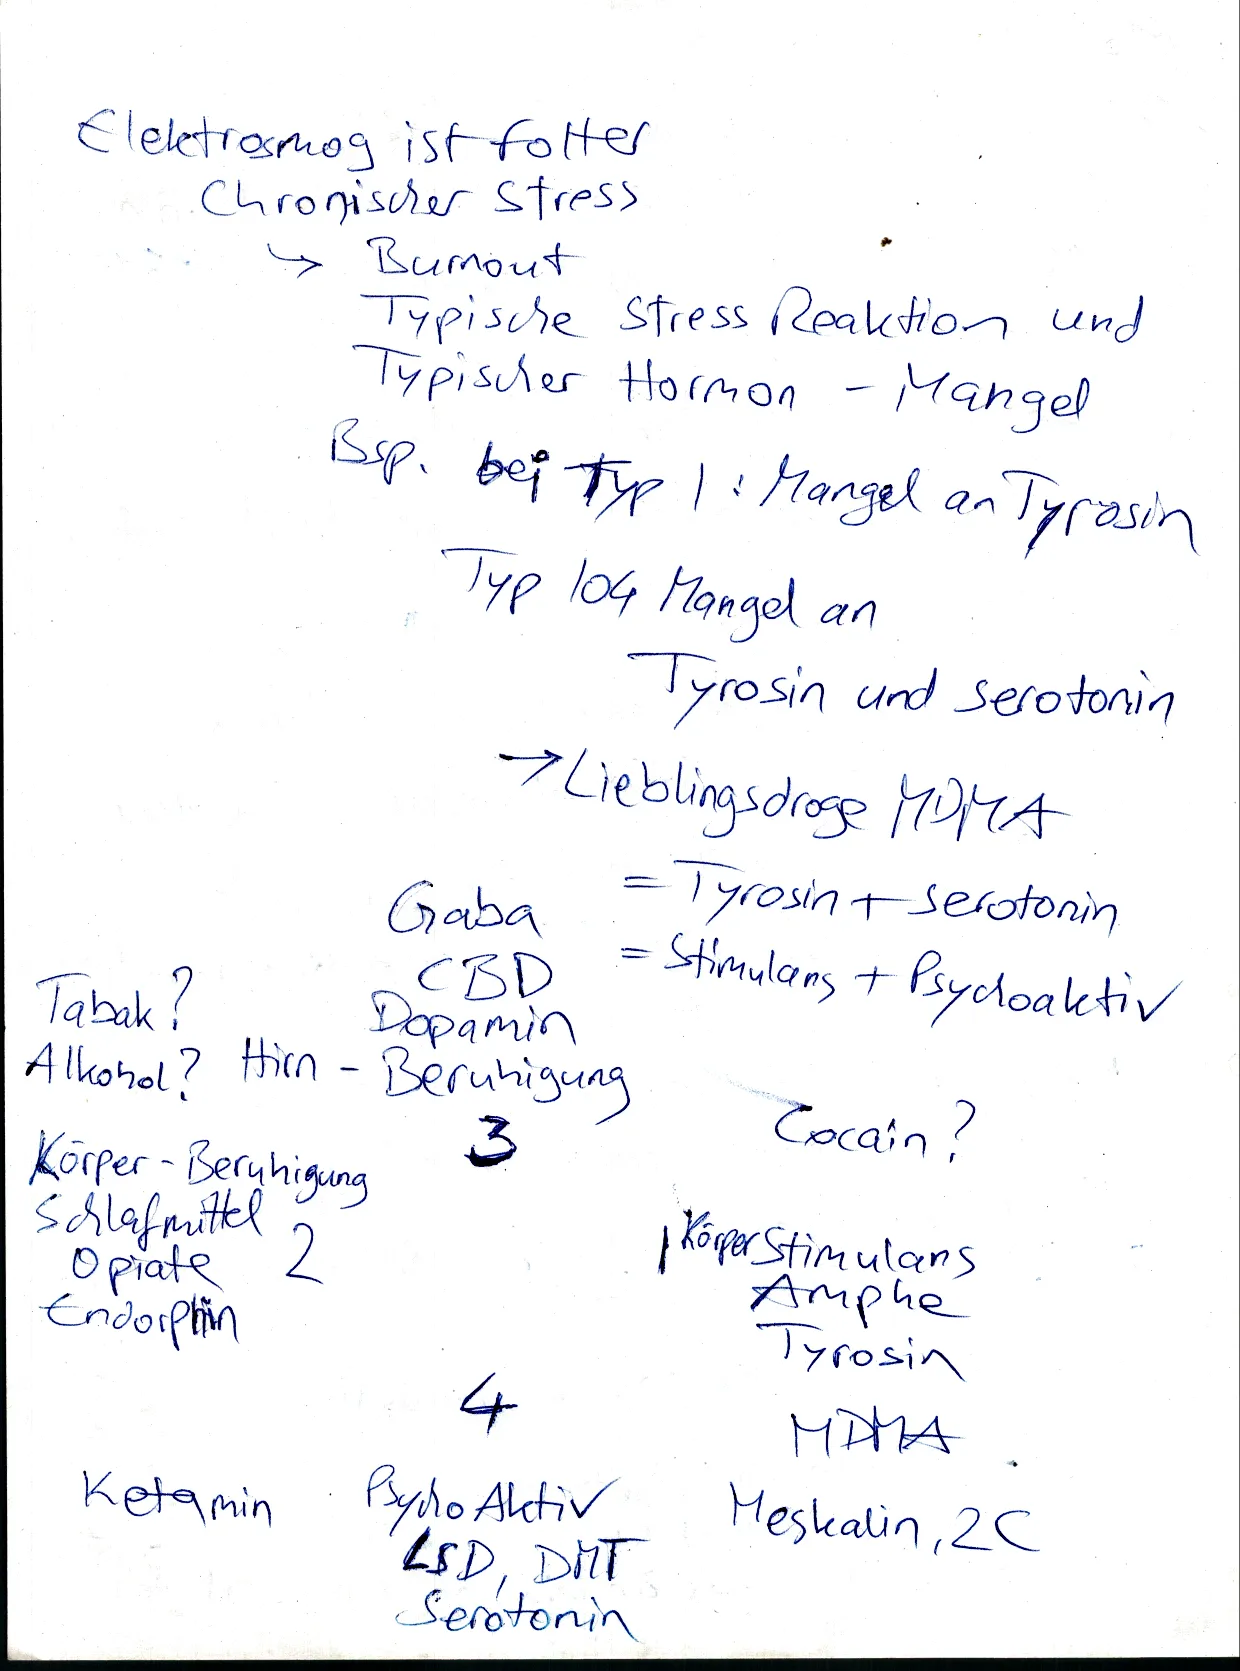 Elektrosmog ist folter
Chronischer Stress
→ Burnout
Typische Stress Reaktion und
Typischer Hormon - Mangel
Bsp. bei Typ 1 : Mangel an Tyrosin
Typ 104 Mangel an
Tyrosin und serotonin
→ Lieblingsdroge MDMA
= Tyrosin + serotonin
= Stimulans + Psychoaktiv
Gaba
CBD
Dopamin
Hirn - Beruhigung
3
Tabak?
Alkohol?
Cocain?
Körper - Beruhigung
Schlafmittel
Opiate 2
Endorphin
1 Körper Stimulans
Amphe
Tyrosin
4
MDMA
Ketamin
Psycho Aktiv
LSD, DMT
Serotonin
Meskalin, 2C